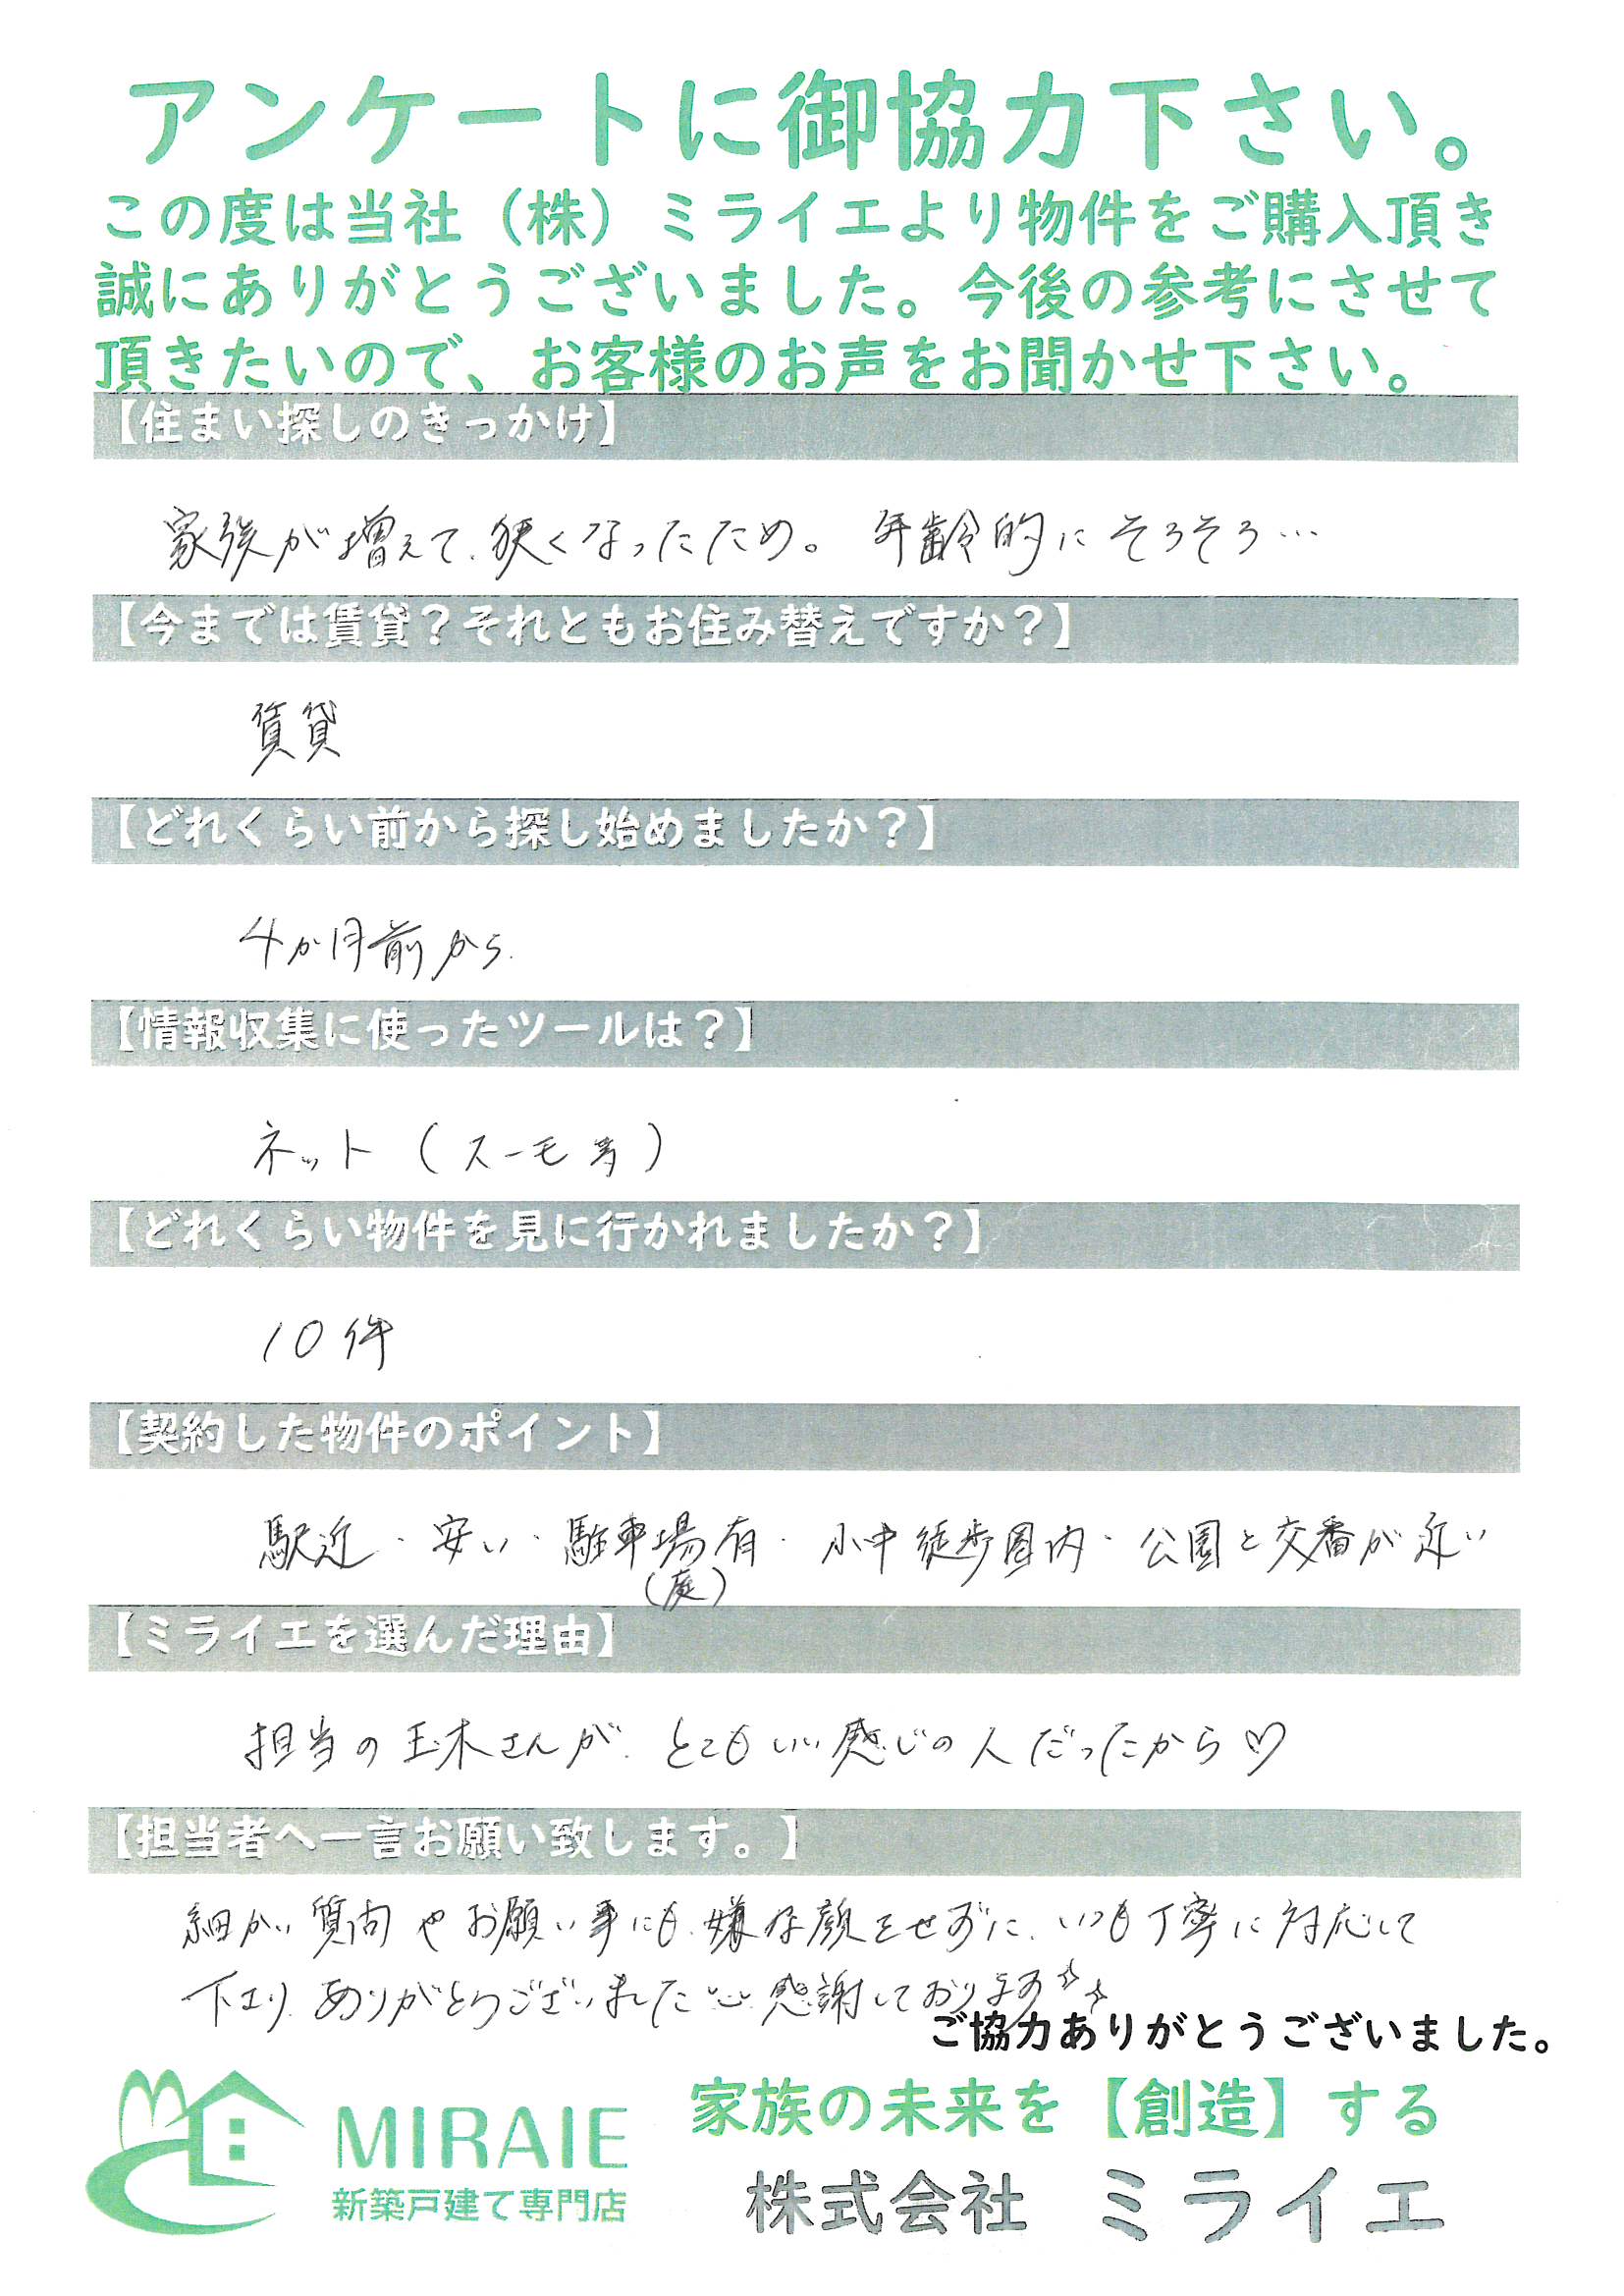 アンケートに御協力下さい。
この度は当社（株）ミライエより物件をご購入頂き
誠にありがとうございました。今後の参考にさせて
頂きたいので、お客様のお声をお聞かせ下さい。
【住まい探しのきっかけ】
家族が増えて、狭くなったため。 年齢的にそろそろ…
【今までは賃貸？それともお住み替えですか？】
賃貸
【どれくらい前から探し始めましたか？】
4か月前から.
【情報収集に使ったツールは？】
ネット（スーモ等）
【どれくらい物件を見に行かれましたか？】
10件
【契約した物件のポイント】
駅近・安い・駐車場有・小中徒歩圏内・公園と交番が近い
（庭）
【ミライエを選んだ理由】
担当の玉木さんが、とてもいい感じの人だったから♡
【担当者へ一言お願い致します。】
細かい質問やお願い事にも、嫌な顔をせずに、いつも丁寧に対応して
下さり、ありがとうございました 感謝しております☆☆
ご協力ありがとうございました。
MIRAIE
新築戸建て専門店
家族の未来を【創造】する
株式会社 ミライエ